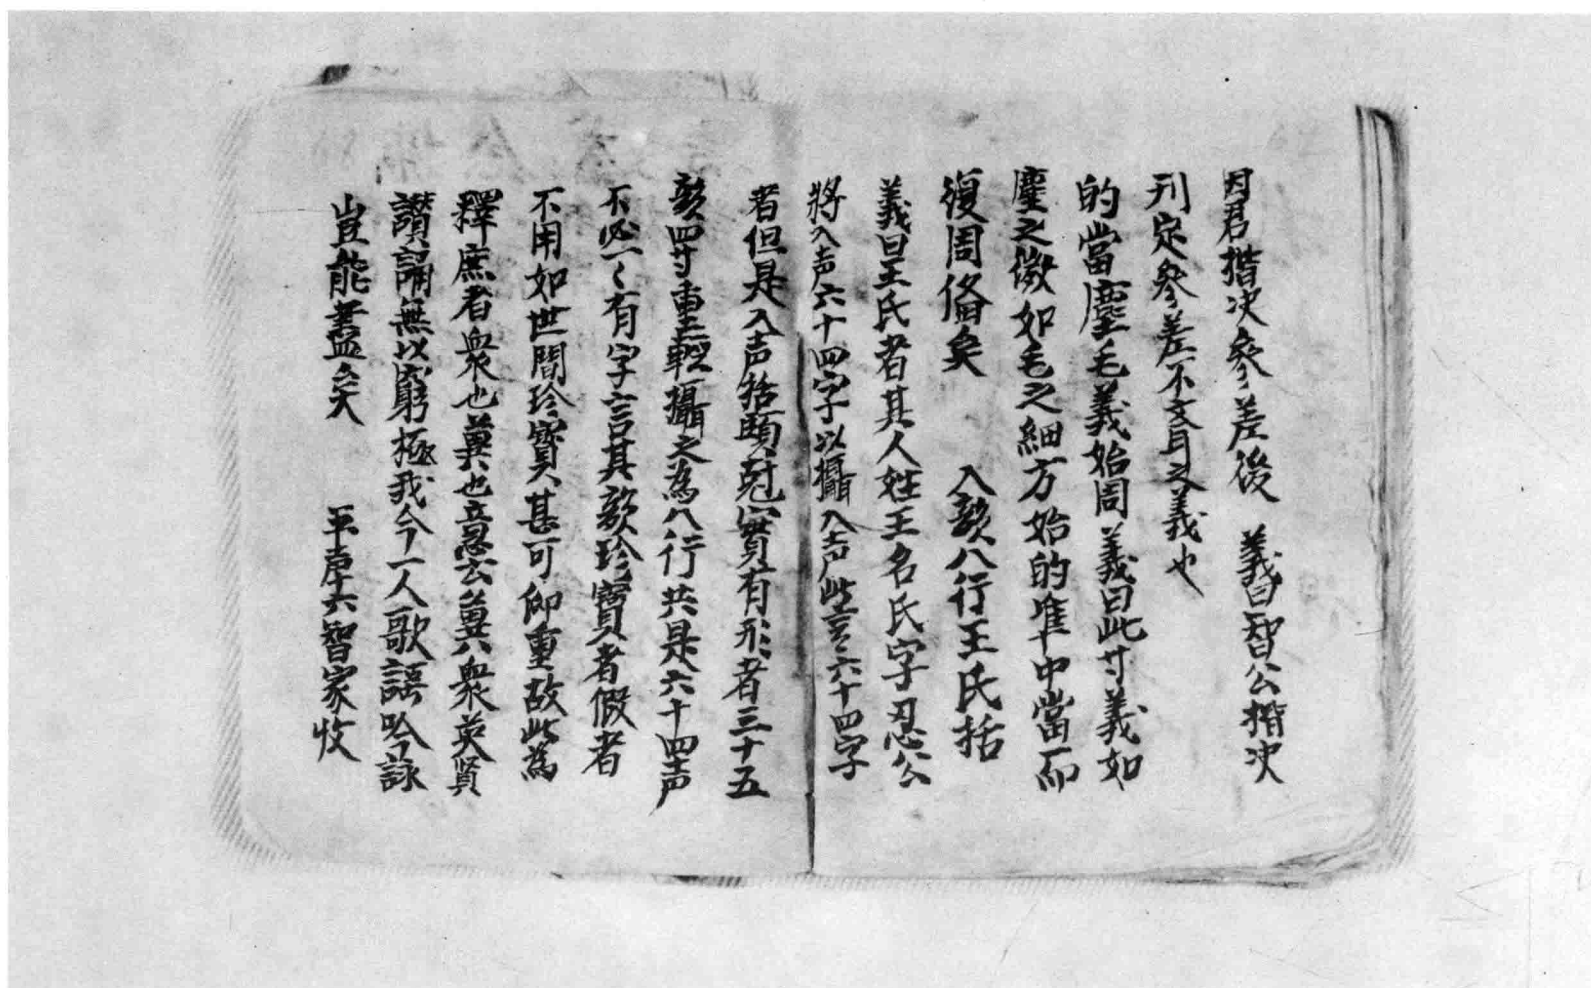 因君揩决參差後　義曰智公揩决
刊定參差不文耳之義也
的當塵毛義始周　義曰此寸義如
塵之微如毛之細方始的准中當而
復周俻矣　入韻八行王氏括
義曰王氏者其人姓王名氏字忍公
將入声六十四字以攝入声此言六十四字
者但是入声括頤尅實有形者三十五
韻四寸重輕攝之為八行共是六十四声
不必一々有字言其韻珍寶者假者
不用如世間珍寶甚可仰重故此為
釋庶者衆也兾也意云兾衆英賢
讃誦無以窮極我今一人歌謡吟詠
豈能盡矣　平声六智家收